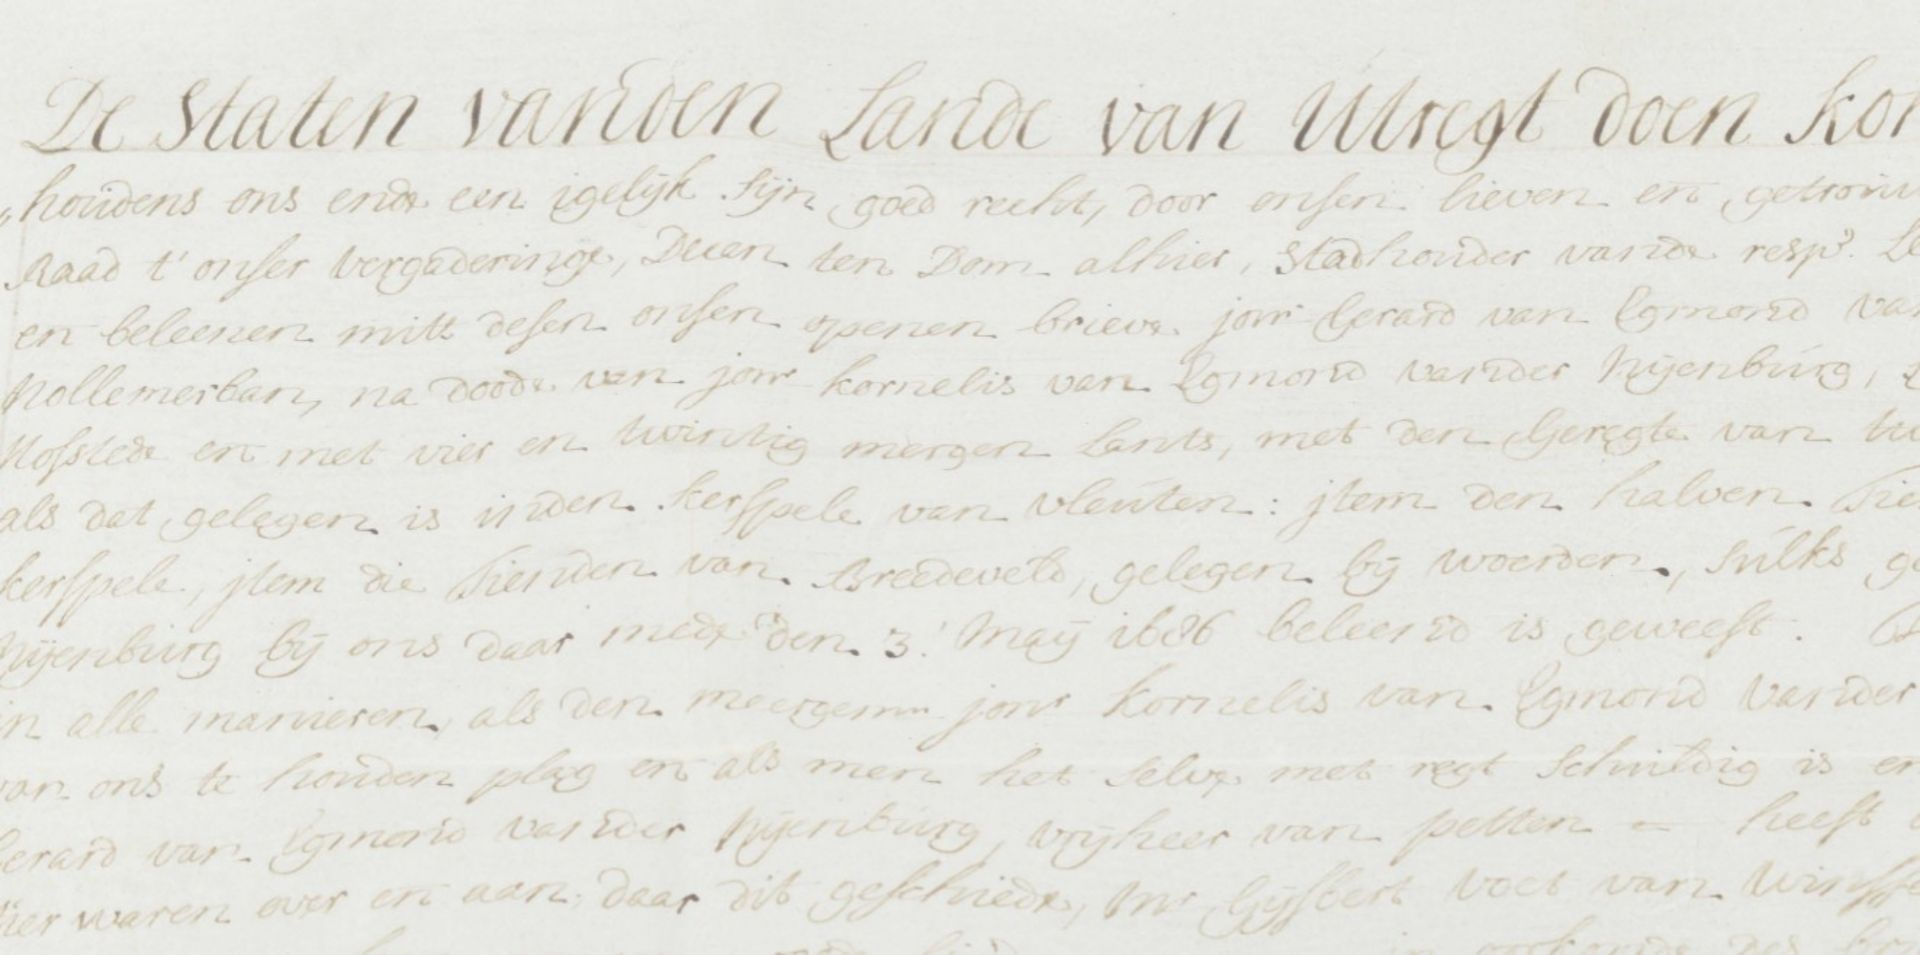 De Staten vanden Lande van Utregt doen kon
„houdens ons ende een igelijk sijn goed recht, door onsen lieven en getrouw
Raad t' onser vergaderinge, Decan ten Dom alhier, Stadhouder vande resp.e Le
en beleenen mitt desen onsen openen brieve jonr Gerard van Egmond van
Nollemerban, na doode van jonr kornelis van Egmond vander Nijenburg,
Hofstede en met vier en twintig mergen Lants, met den Geregte van
als dat gelegen is inden kerspele van vleuten: jtem den halven Tie
kerspele, jtem die Tienden van Breedeveld, gelegen bij woerden, sulks ge
Nijenburg bij ons daar mede den 3. Maij 1686 beleend is geweest.
in alle manieren, als den meergem jonr kornelis van Egmond vander
van ons te houden plag en als men het selve met regt schuldig is en
Gerard van Egmond vander Nijenburg, vrijheer van petten - heeft
hier waren over en aan, daar dit geschiede, Mr Gijsbert Voet van Winsse
in oorkonde des